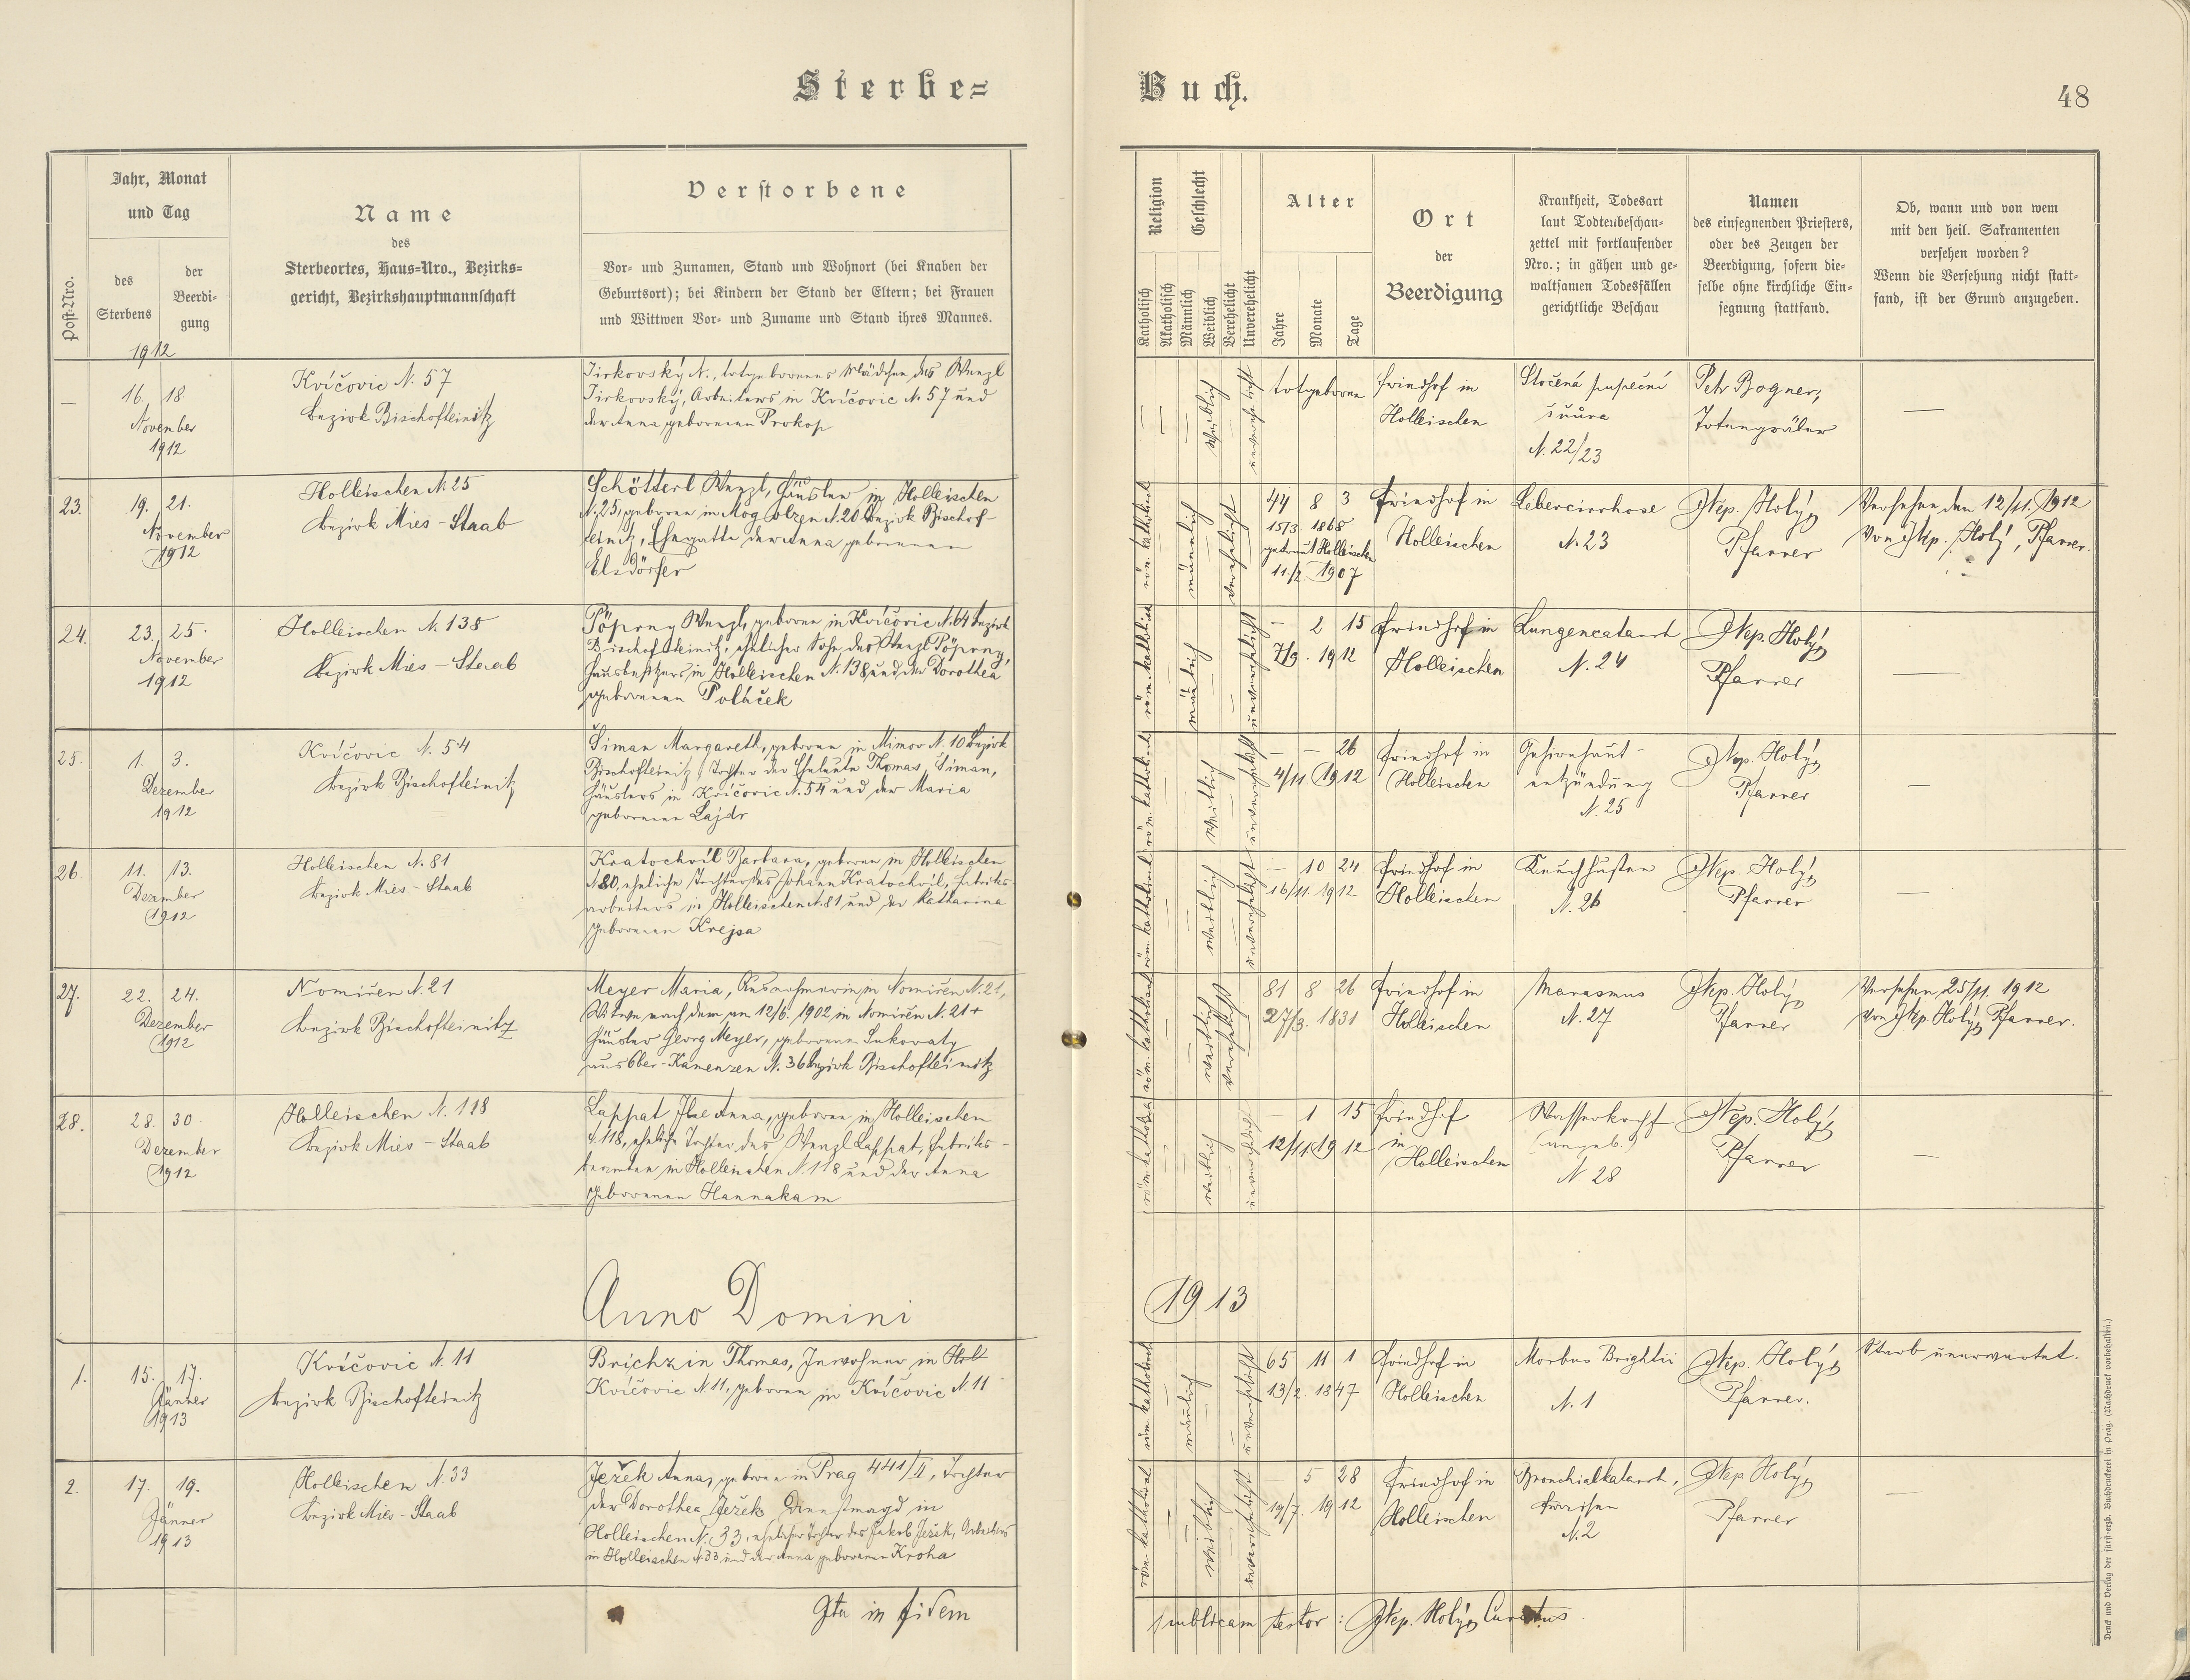 Sterbe=
Buch.
48
Post-Nro.
Jahr, Monat
und Tag
des
Sterbens
der
Beerdi-
gung
1912
Name
des
Sterbeortes, Haus=Nro., Bezirks=
gericht, Bezirkshauptmannschaft
Verstorbene
Vor- und Zunamen, Stand und Wohnort (bei Knaben der
Geburtsort); bei Kindern der Stand der Eltern; bei Frauen
und Wittwen Vor- und Zuname und Stand ihres Mannes.
Religion
Katholisch
Akatholisch
Geschlecht
Männlich
Weiblich
Verehelicht
Unverehelicht
Alter
Jahre
Monate
Tage
Ort
der
Beerdigung
Krankheit, Todesart
laut Todtenbeschau-
zettel mit fortlaufender
Nro.; in gähen und ge-
waltsamen Todesfällen
gerichtliche Beschau
Namen
des einsegnenden Priesters,
oder des Zeugen der
Beerdigung, sofern die-
selbe ohne kirchliche Ein-
segnung stattfand.
Ob, wann und von wem
mit den heil. Sakramenten
versehen worden?
Wenn die Versehung nicht statt-
fand, ist der Grund anzugeben.
— 16. 18.
November
1912
Kvíčovic N. 57
Bezirk Bischofteinitz
Jirkovský N., totgeborenes Mädchen des Wenzl
Jirkovský, Arbeiters in Kvíčovic N. 57 und
der Anna geborenen Prokop
weiblich
unverehelicht
totgeboren
Friedhof in
Holleischen
Stočená pupeční
šnůra
N. 22/23
Petr Bogner,
Totengräber
—
23. 19. 21.
November
1912
Holleischen N. 25
Bezirk Mies - Staab
Schötterl Wenzl, Häusler in Holleischen
N. 25, geboren in Mogolzen N. 20 Bezirk Bischof-
teinitz, Ehegatte der Anna geborenen
Elsdörfer
röm. katholisch
männlich
verehelicht
44 8 3
15/3. 1868
getraut Holleischen
11./2. 1907
Friedhof in
Holleischen
Lebercirrhose
N. 23
Nep. Holý,
Pfarrer
Versehen den 12/11. 1912
von Nep. Holý, Pfarrer.
24. 23. 25.
November
1912
Holleischen N. 138
Bezirk Mies - Staab
Pöpperny Wenzl, geboren in Kvíčovic N. 64 Bezirk
Bischofteinitz, ehelicher Sohn des Wenzl Pöpperny,
Hausbesitzers in Holleischen N. 138 und der Dorothea
geborenen Polnček
röm. katholisch
männlich
unverehelicht
— 2 15
7/9. 1912
Friedhof in
Holleischen
Lungencatarrh
N. 24
Nep. Holý,
Pfarrer
—
25. 1. 3.
Dezember
1912
Kvíčovic N. 54
Bezirk Bischofteinitz
Šiman Margareth, geboren in Mimov N. 10 Bezirk
Bischofteinitz, Tochter der Eheleute Thomas Šiman,
Häuslers in Kvíčovic N. 54 und der Maria
geborenen Lajdr
röm. katholisch
weiblich
unverehelicht
— — 26
4/11. 1912
Friedhof in
Holleischen
Gehirnhaut-
entzündung
N. 25
Nep. Holý,
Pfarrer
—
26. 11. 13.
Dezember
1912
Holleischen N. 81
Bezirk Mies - Staab
Kratochvíl Barbara, geboren in Holleischen
N. 80, eheliche Tochter des Johann Kratochvíl, Fabriks-
arbeiters in Holleischen N. 81 und der Katharina
geborenen Krejsa
röm. katholisch
weiblich
unverehelicht
— 10 24
16/11. 1912
Friedhof in
Holleischen
Keuchhusten
N. 26
Nep. Holý,
Pfarrer
—
27. 22. 24.
Dezember
1912
Nomiřen N. 21
Bezirk Bischofteinitz
Meyer Maria, Ausnehmerin in Nomiřen N. 21,
Witwe nach dem am 12/6. 1902 in Nomiřen N. 21 +
Häusler Georg Meyer, geborenen Sukovaty
aus Ober-Kamenzen N. 36 Bezirk Bischofteinitz
röm. katholisch
weiblich
verehelicht
81 8 26
27/3. 1831
Friedhof in
Holleischen
Marasmus
N. 27
Nep. Holý,
Pfarrer
Versehen 25/11. 1912
von Nep. Holý, Pfarrer.
28. 28. 30.
Dezember
1912
Holleischen N. 118
Bezirk Mies - Staab
Lappat Ilse Anna, geboren in Holleischen
N. 118, eheliche Tochter des Wenzl Lappat, Fabriks-
beamten in Holleischen N. 118 und der Anna
geborenen Hannakam
röm. katholisch
weiblich
unverehelicht
1 15
12/11. 1912
Friedhof
in
Holleischen
Wasserkopf
(angeb.)
N 28
Nep. Holý,
Pfarrer
—
Anno Domini
1913
1. 15. 17.
Jänner
1913
Kvíčovic N. 11
Bezirk Bischofteinitz
Brichzin Thomas, Inwohner in Holl
Kvíčovic N. 11, geboren in Kvíčovic N. 11
röm. katholisch
männlich
unverehelicht
65 11 1
13/2. 1847
Friedhof in
Holleischen
Morbus Brightii
N. 1
Nep. Holý,
Pfarrer.
Starb unerwartet.
2. 17. 19.
Jänner
1913
Holleischen N. 33
Bezirk Mies - Staab
Ježek Anna, geboren in Prag 441/II, Tochter
der Dorothea Ježek, Dienstmagd in
Holleischen N. 33, ehelicher Tochter des Jakob Ježek, Arbeiters
in Holleischen N. 33 und der Anna geborenen Kroha
röm. katholisch
weiblich
unverehelicht
— 5 28
19/7. 1912
Friedhof in
Holleischen
Bronchialkatarrh,
Fraisen
N. 2
Nep. Holý,
Pfarrer
—
Ita in fidem
publicam testor: Nep. Holý, Curatus.
Druck und Verlag der fürst-erzb. Buchdruckerei in Prag. (Nachdruck vorbehalten.)